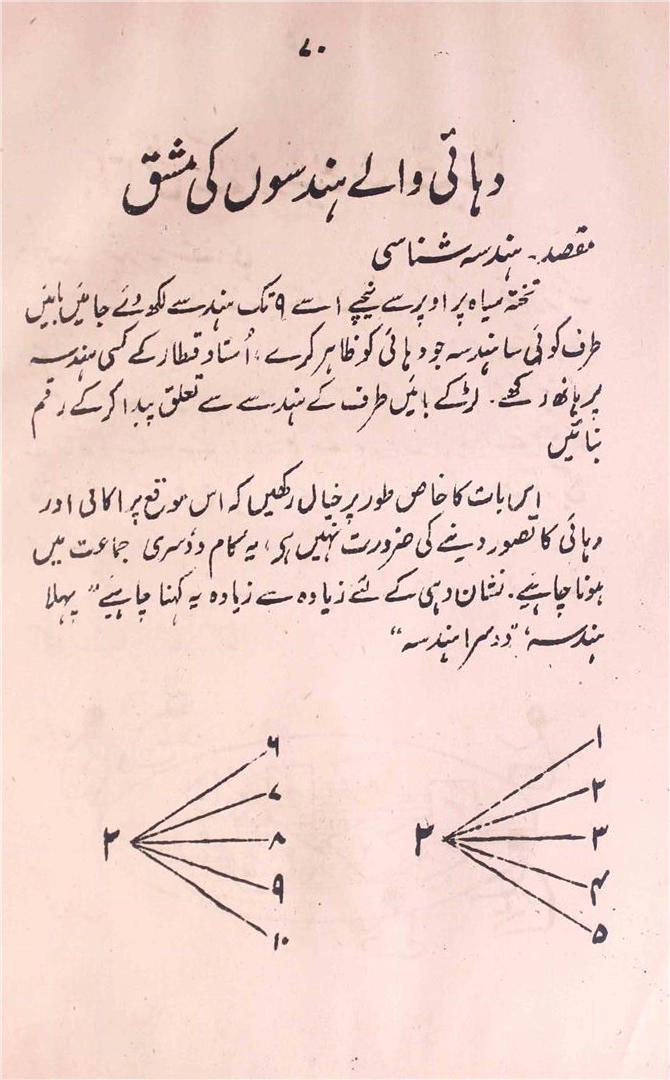 ۷۰
دہائی والے ہندسوں کی مشق
مقصد۔ ہندسہ شناسی
تختہ سیاہ پر اوپر سے نیچے ۱ سے ۹ تک ہندسے لکھ دئے جائیں بائیں
طرف کوئی سا ہندسہ جو دہائی کو ظاہر کرے، اُستاد قطار کے کسی ہندسہ
پر ہاتھ رکھے۔ لڑکے بائیں طرف کے ہندسے سے تعلق پیدا کر کے رقم
بنائیں
اس بات کا خاص طور پر خیال رکھیں کہ اس موقع پر اکائی اور
دہائی کا تصور دینے کی ضرورت نہیں ہی، یہ کام دوسری جماعت میں
ہونا چاہیے۔ نشان دہی کے لئے زیادہ سے زیادہ یہ کہنا چاہیے ”پہلا
ہندسہ“، ”دوسرا ہندسہ“
۱
۲
۳
۴
۵
۲
۶
۷
۸
۹
۱۰
۲